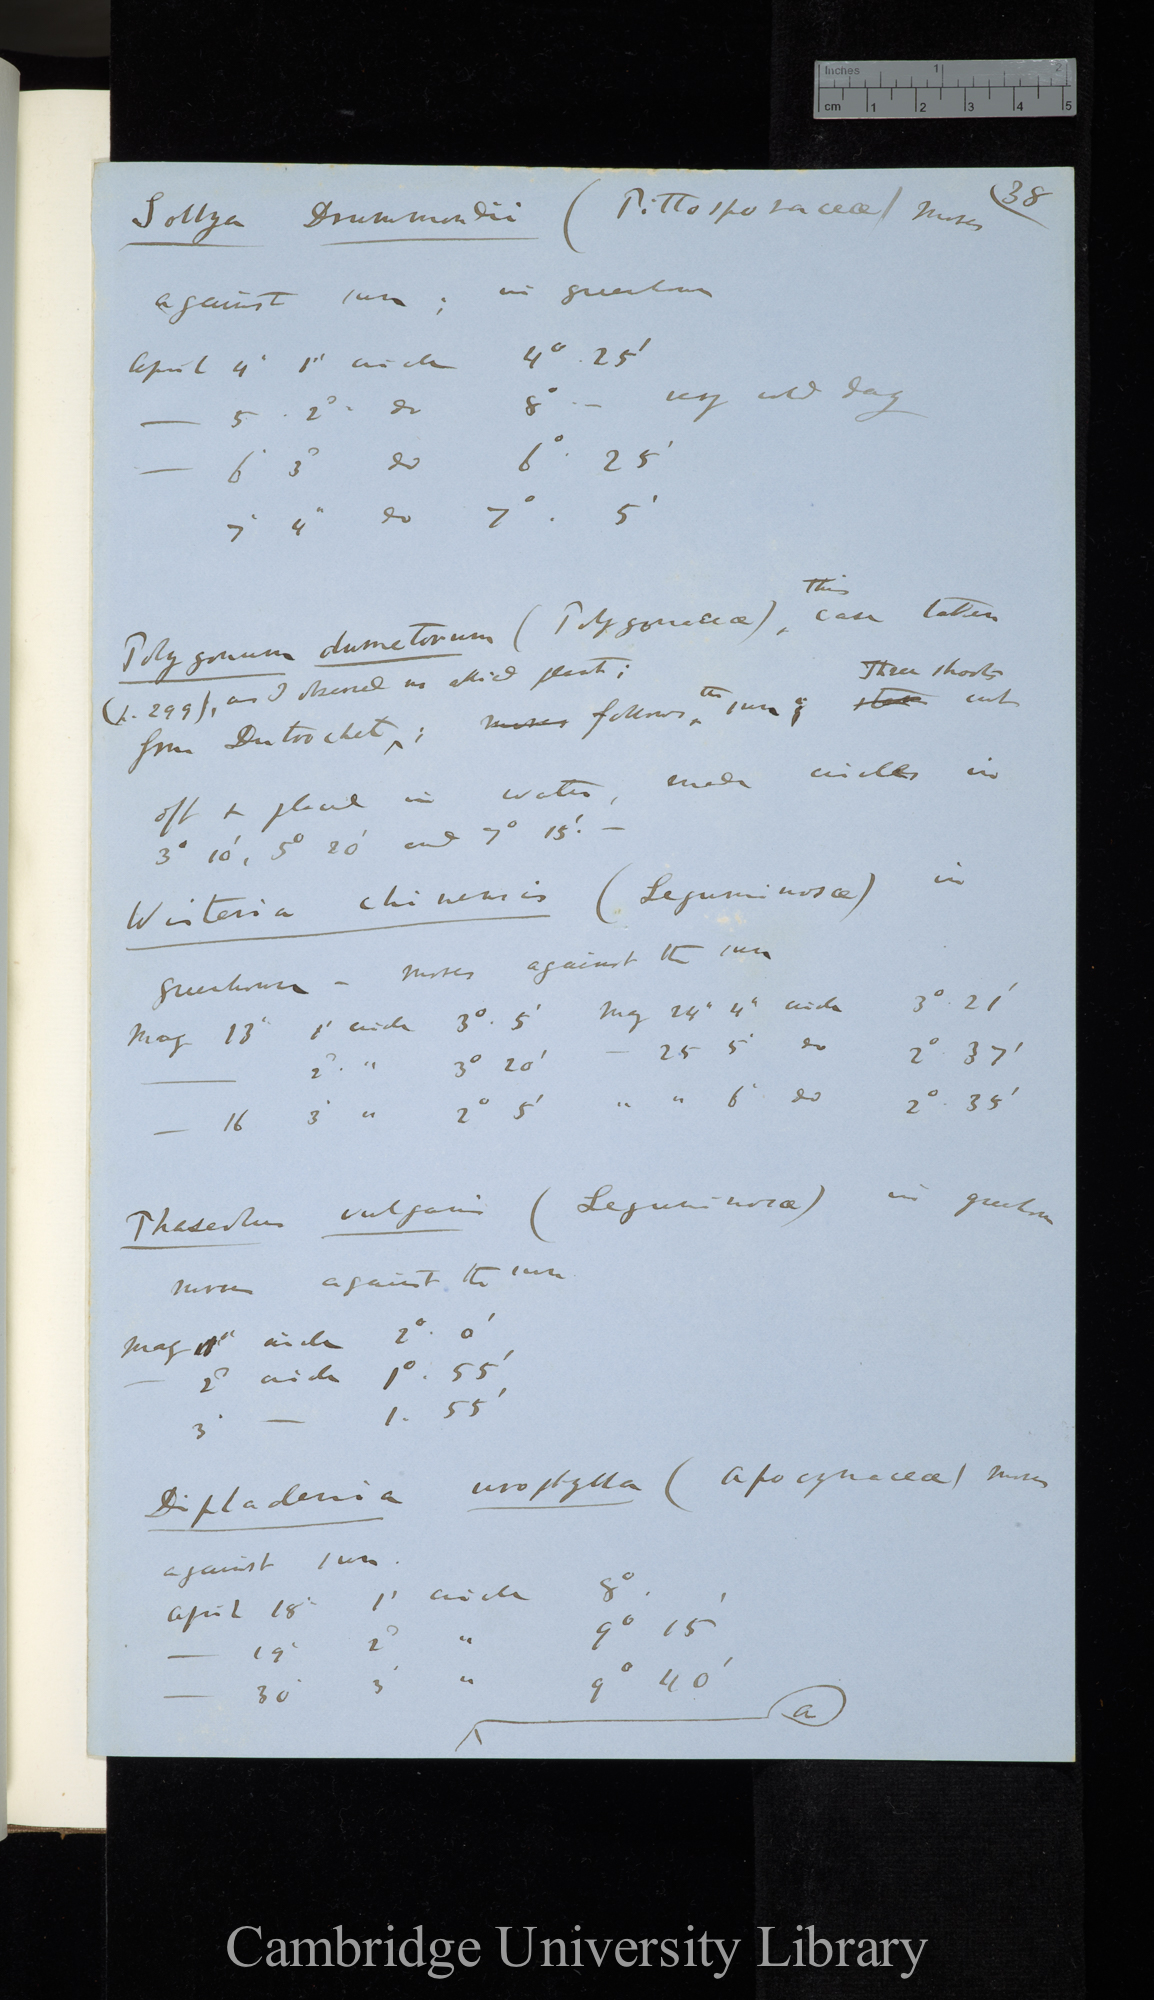 Inches 1 2
cm 1 2 3 4 5
38
Sollya Drummondii (Pittosporaceæ) moves
against sun; in greenhouse
April 4· 1st circle 4° 25′
— 5· 2d· do 8° — very cold day
— 6· 3d do 6° 25′
7· 4" do 7° 5′
Polygonum dumetorum (Polygonaceæ), this case taken
(p. 299), as I observed no allied plant;
from Dutrochet; moves follows the sun; Three shoots cut
off & placed in water, made circles in
3° 10′, 5° 20′ and 7° 15′. —
Wisteria chinensis (Leguminosæ) in
greenhouse — moves against the sun
May 13· 1′ circle 3° 5′ May 24" 4" circle 3° 21′
— 2d· " 3° 20′ — 25 5· do 2° 37′
— 16 3· " 2° 5′ " " 6· do 2° 35′
Phaseolus vulgaris (Leguminosæ) in greenhouse
moves against the sun
May 1st circle 2° 0′
— 2d circle 1° 55′
3· — 1· 55′
Dipladenia urophylla (Apocynaceæ) moves
against sun.
April 18· 1′ circle 8°
— 19· 2d " 9° 15′
— 30 3· " 9° 40′
a
Cambridge University Library